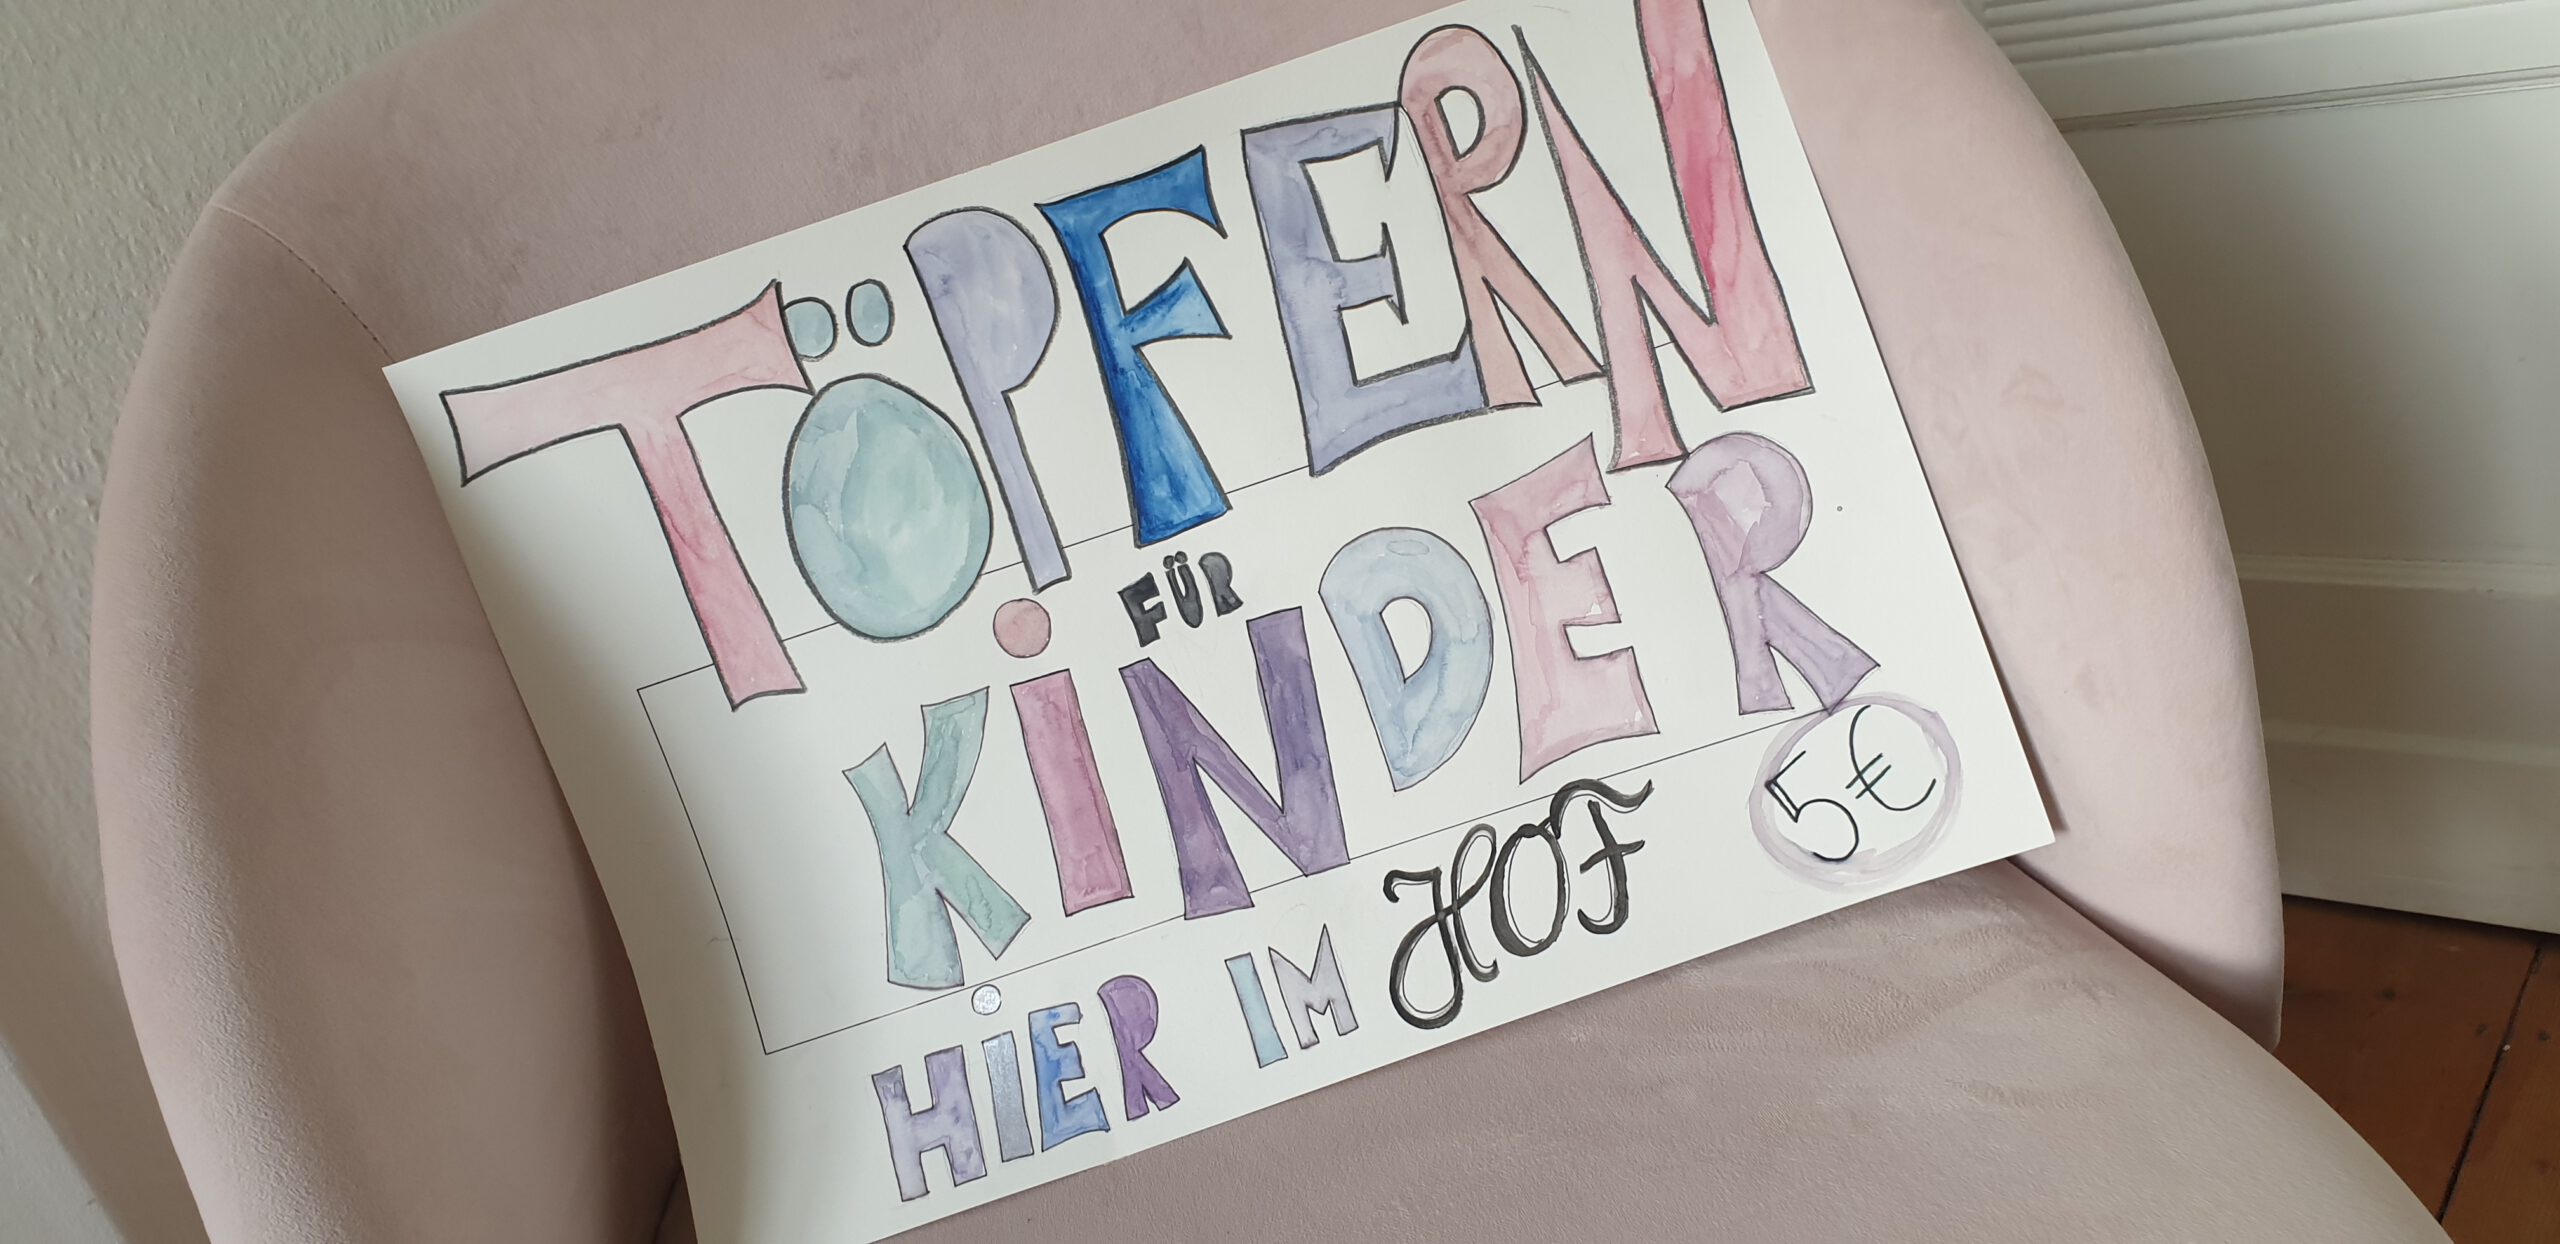 TÖPFERN
FÜR
KiNDER
HiER IM HOF
5€